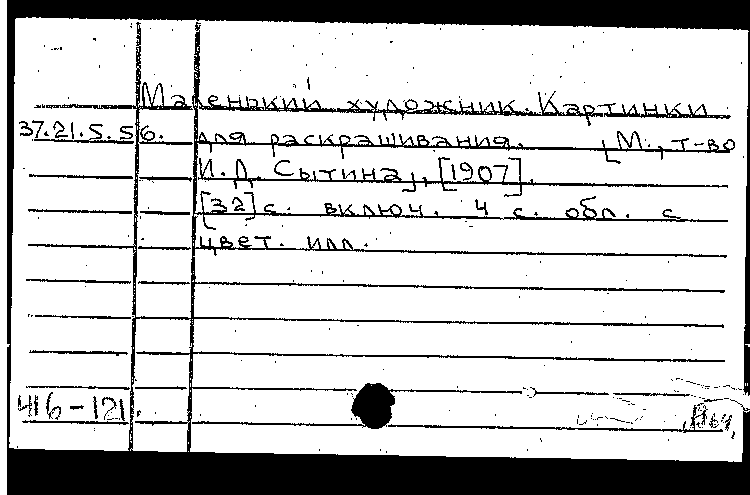 Маленький художник. Картинки
37.21.5.56. для раскрашивания. [М., т-во
И.Д. Сытина], [1907].
[32] с. включ. 4 с. обл. с
цвет. илл.
416-121.